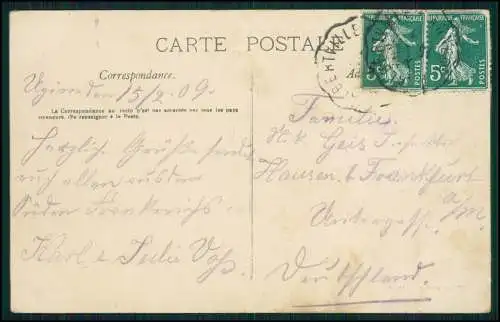 CARTE POSTALE
Correspondance.
La Correspondance au recto n'est pas acceptée par tous les pays
étrangers. (Se renseigner à la Poste.)
den 15/2.09.
Herzliche Grüße sendet
euch allen aus dem
Süden Frankreichs
Karl &
RÉPUBLIQUE FRANÇAISE
5c POSTES
5c POSTES
Familie
Geis
Hausen b Frankfurt
a/M.
Untergasse
Deutschland.